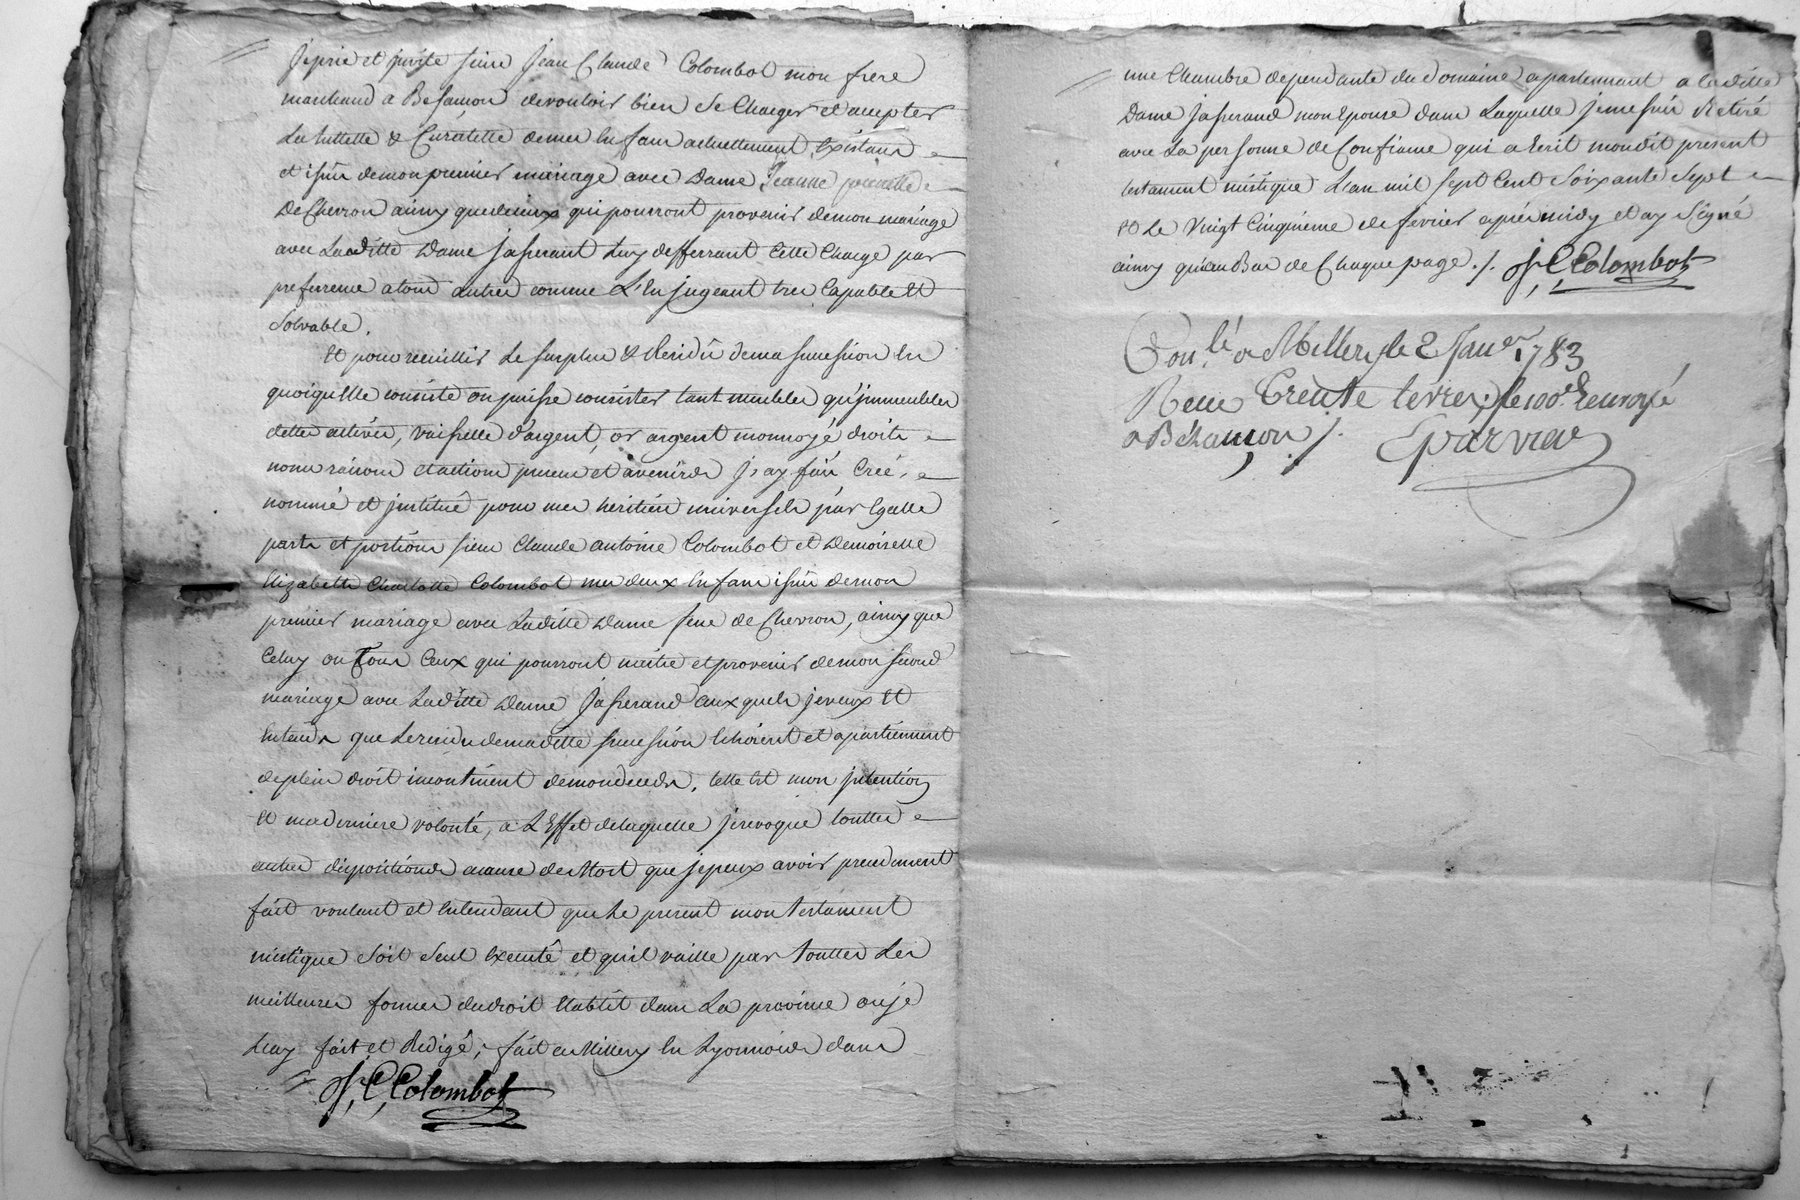 Je prie et jnvite sieur Jean Claude Colombot mon frere
marchand a Besancon de vouloir bien se Charger et accepter
La tuttelle & Curatelle de mes Enfans actuellement Existans
et issus de mon premier mariage avec Dame Jeanne
De Chevron ainsy que deceux qui pourront provenir de mon mariage
avec Laditte Dame Jasserant Luy defferrant Cette Charge par
preference a tous autres comme L'En jugeant tres Capable Et
Solvable.
Et pour receuillir Le surplus & Residû de ma succession En
quoiqu'Elle consiste ou puisse consister tant meubles qu'jmmeubles
dettes actives, vaisselle d'argent, or argent monnoyé droits
noms raisons et actions presens et avenirs J'ay fais Creé,
nommé et jnstitué pour mes heritiers universels par Egalle
parts et portions sieur Claude antoine Colombot et Demoiselle
Elizabette Charlotte Colombot mes deux Enfans issus de mon
premier mariage avec Laditte Dame feue de Chevron, ainsy que
Celuy ou Tous Ceux qui pourront naitre et provenir de mon second
mariage avec Laditte Dame Jasserand auxquels je veux Et
Entends que Le residu de maditte succession Echoient et apartiennent
de plein droit incontinent de mon deceds. telle Est mon jntention
Et ma derniere volonté, a L'Effet de laquelle je revoque touttes
autres dispositions a cause de Mort que je peux avoir precedement
fait voulant et Entendant que Le present mon testament
mistique soit seul Executé et quil vaille par touttes Les
meilleures formes du droit Etablit dans La province ou je
L'ay fait et Redigé; fait a Millery En Lyonnois dans
J, C, Colombot
une Chambre dependante du Domaine apartennant a laditte
Dame Jasserand mon Epouse dans Laquelle je me suis Retiré
avec La personne de Confiance qui a Ecrit mondit present
testament mistique L'an mil sept Cent Soixante Sept
Et Le Vingt Cinquieme de fevrier après midy et ay Signé
ainsy qu'au Bas de Chaque page. /. J, C, Colombot
Conlé a Millery le 2 Janer 1783
Recu Trente livres, le 100e Renvoyé
a Bezançon /. Eparvier